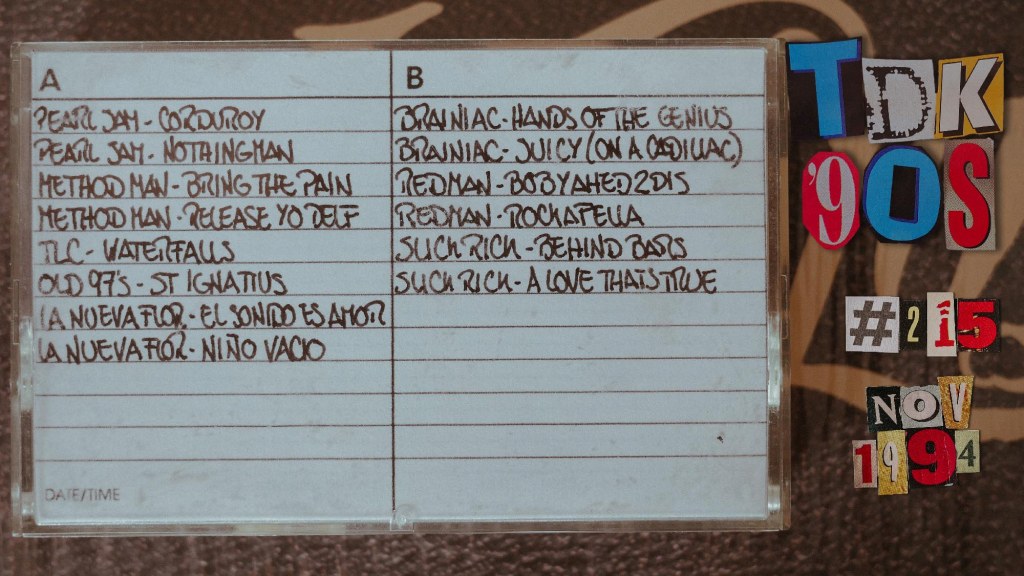 A
PEARL JAM - CORDUROY
PEARL JAM - NOTHINGMAN
METHOD MAN - BRING THE PAIN
METHOD MAN - RELEASE YO DELF
TLC - WATERFALLS
OLD 97'S - ST IGNATIUS
LA NUEVA FLOR - EL SONIDO ES AMOR
LA NUEVA FLOR - NIÑO VACIO
DATE/TIME
B
BRAINIAC - HANDS OF THE GENIUS
BRAINIAC - JUICY (ON A CADILLAC)
REDMAN - BOBYAHED2DIS
REDMAN - ROCKAFELLA
SLICK RICK - BEHIND BARS
SLICK RICK - A LOVE THAT'S TRUE
TDK
'90S
#215
NOV
1994